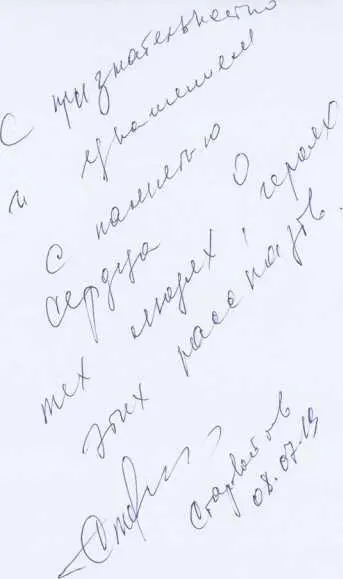 С признательностью
и уважением
с памятью
сердца о
тех людях, героях
этих рассказов.
Старовойтов
08.07.19